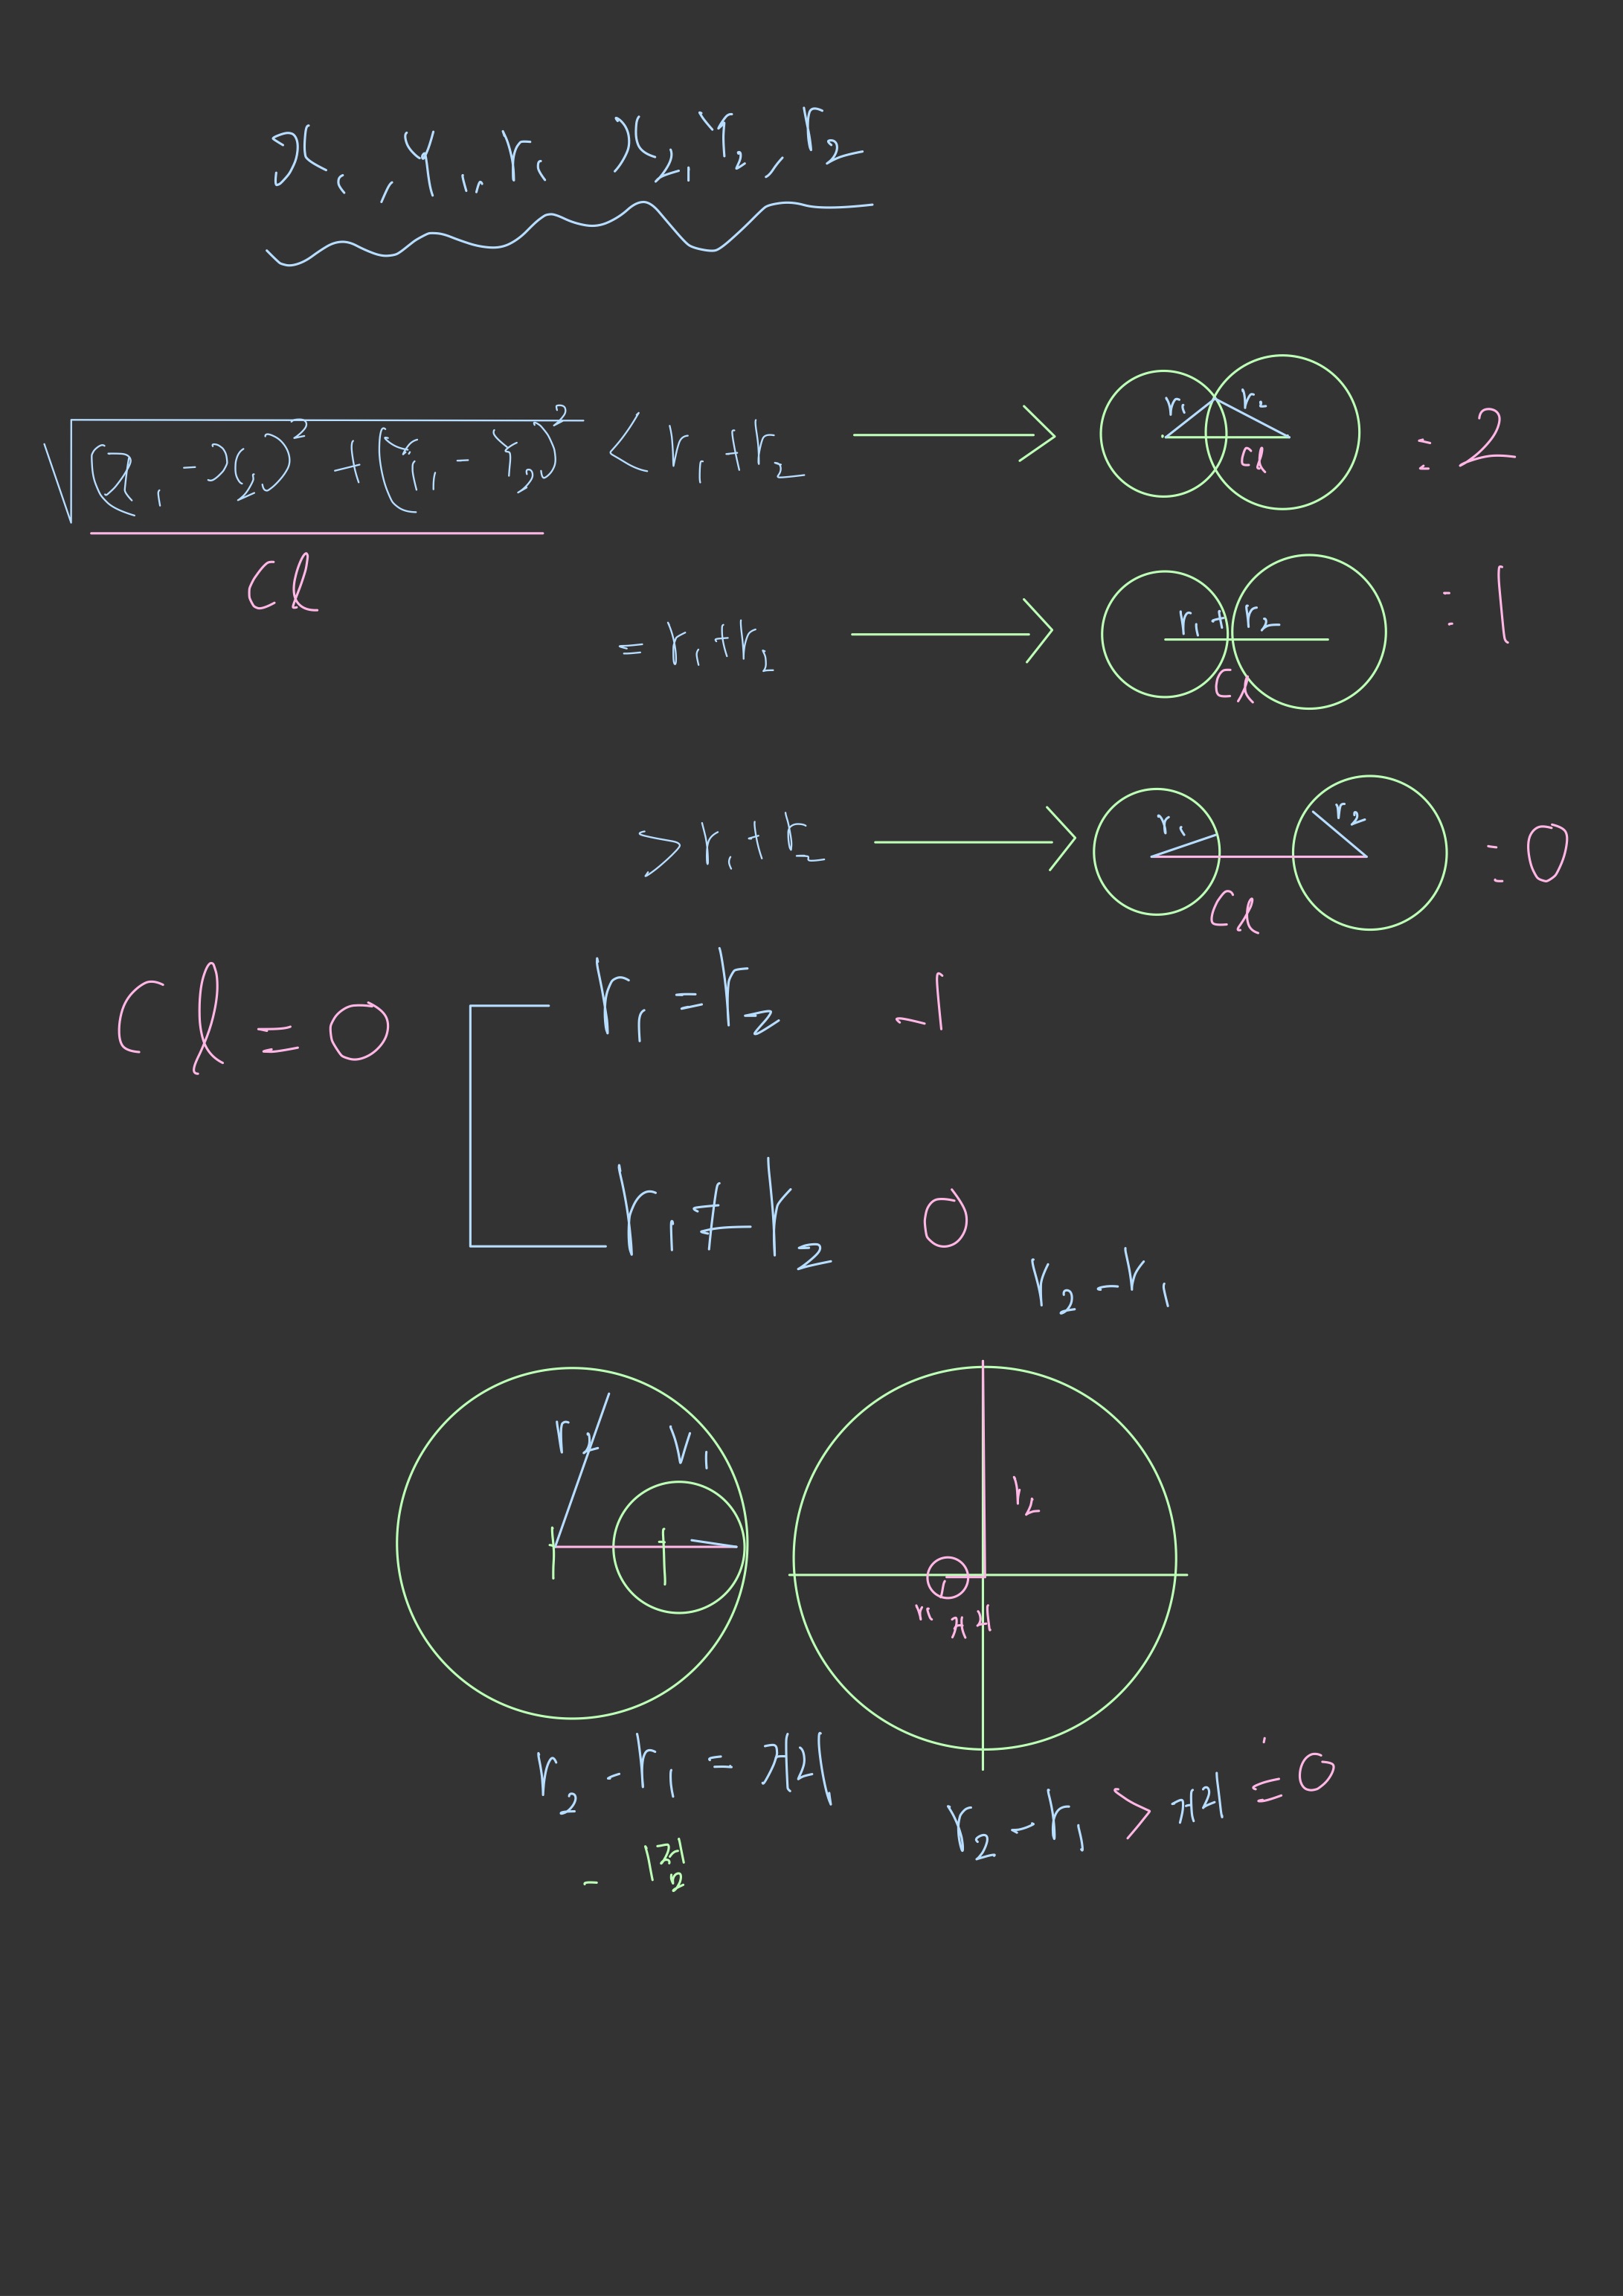 x₁, y₁, r₁ x₂, y₂, r₂
√(x₁ - x₂)² + (y₁ - y₂)² < r₁ + r₂
r₁ r₂
d
= 2
d
= r₁ + r₂
r₁ + r₂
d
= 1
> r₁ + r₂
r₁ r₂
d
= 0
d = 0
r₁ = r₂ -1
r₁ ≠ r₂ 0
r₂ - r₁
r₂ r₁
r₂
r₁ 거리
r₂ - r₁ = 거리
r₂ - r₁ > 거리 = 0